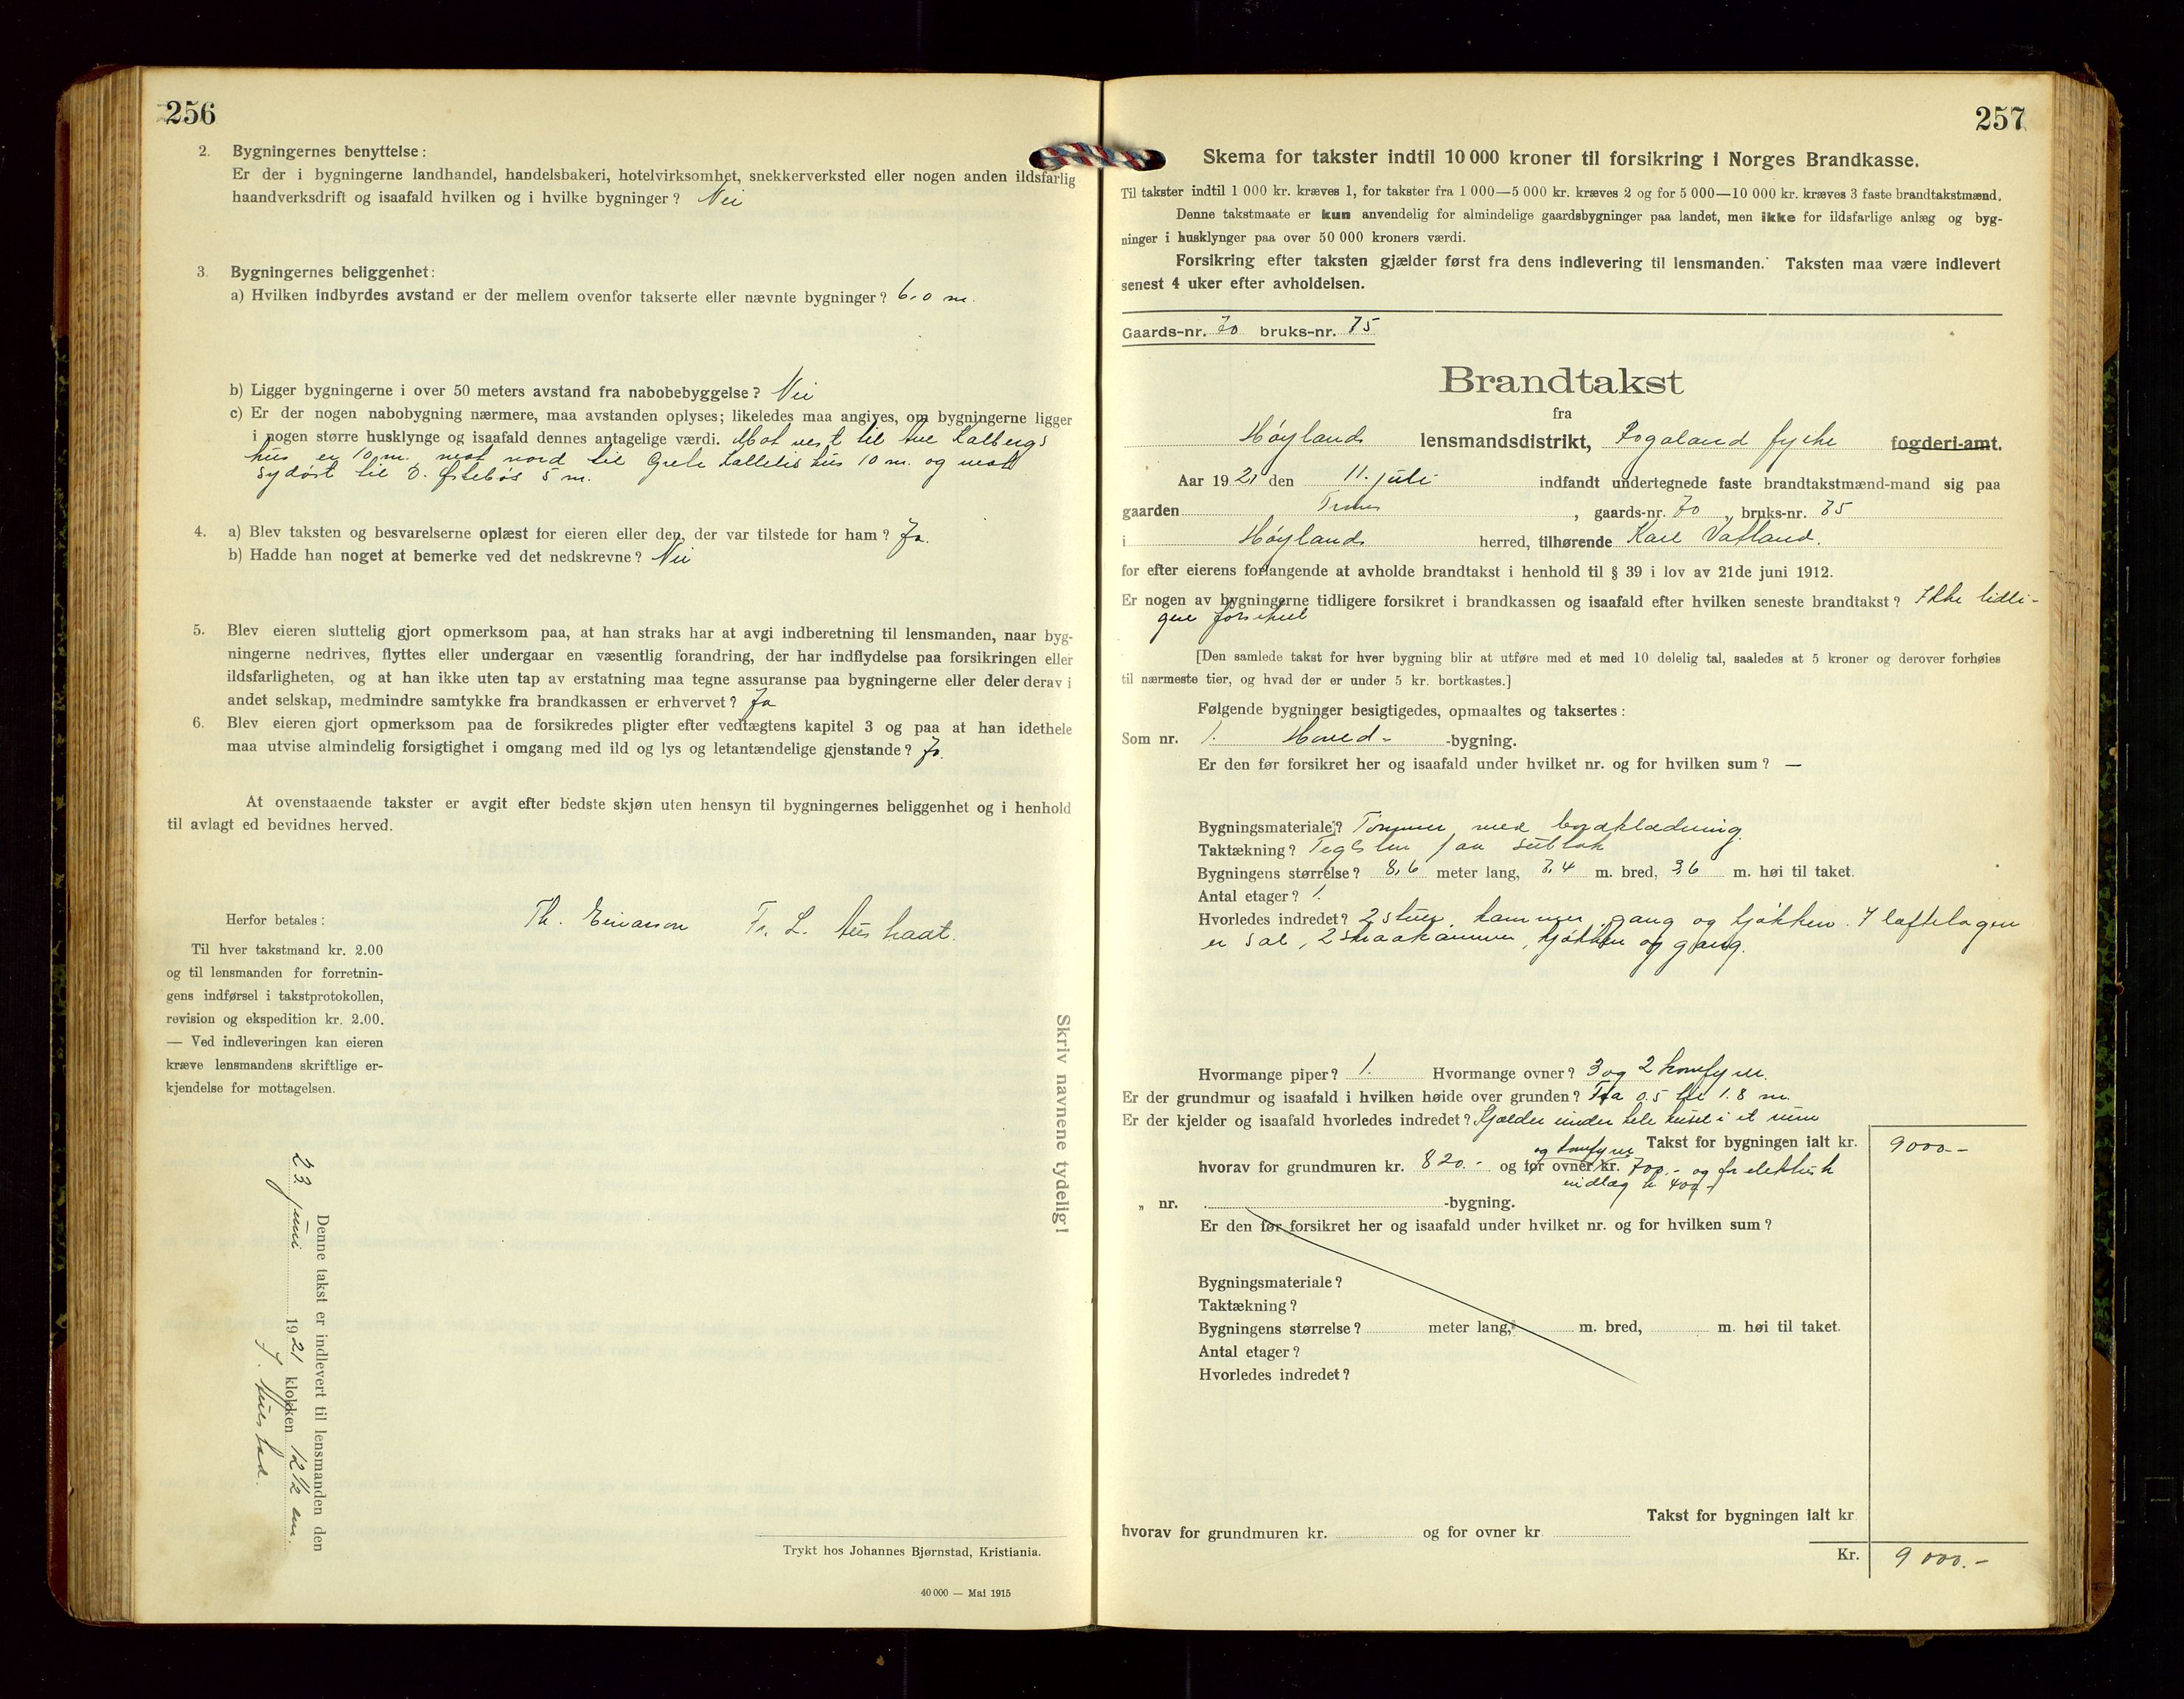 256
2. Bygningernes benyttelse:
Er der i bygningerne landhandel, handelsbakeri, hotelvirksomhet, snekkerverksted eller nogen anden ildsfarlig
haandverksdrift og isaafald hvilken og i hvilke bygninger? Nei
3. Bygningernes beliggenhet:
a) Hvilken indbyrdes avstand er der mellem ovenfor takserte eller nævnte bygninger? 6,0 m.
b) Ligger bygningerne i over 50 meters avstand fra nabobebyggelse? Nei
c) Er der nogen nabobygning nærmere, maa avstanden oplyses; likeledes maa angives, om bygningerne ligger
i nogen større husklynge og isaafald dennes antagelige værdi. Mot vest til Kalbergs
hus er 10 m. mot nord til Grete hus 10 m. og mot
sydøst til Østebøs 5 m.
4. a) Blev taksten og besvarelserne oplæst for eieren eller den, der var tilstede for ham? Ja.
b) Hadde han noget at bemerke ved det nedskrevne? Nei
5. Blev eieren sluttelig gjort opmerksom paa, at han straks har at avgi indberetning til lensmanden, naar byg-
ningerne nedrives, flyttes eller undergaar en væsentlig forandring, der har indflydelse paa forsikringen eller
ildsfarligheten, og at han ikke uten tap av erstatning maa tegne assuranse paa bygningerne eller deler derav i
andet selskap, medmindre samtykke fra brandkassen er erhvervet? Ja
6. Blev eieren gjort opmerksom paa de forsikredes pligter efter vedtægtens kapitel 3 og paa at han idethele
maa utvise almindelig forsigtighet i omgang med ild og lys og letantændelige gjenstande? Ja.
At ovenstaaende takster er avgit efter bedste skjøn uten hensyn til bygningernes beliggenhet og i henhold
til avlagt ed bevidnes herved.
Th. Einarson Fr. L. Aushaat.
Herfor betales:
Til hver takstmand kr. 2.00
og til lensmanden for forretnin-
gens indførsel i takstprotokollen,
revision og ekspedition kr. 2.00.
— Ved indleveringen kan eieren
kræve lensmandens skriftlige er-
kjendelse for mottagelsen.
Skriv navnene tydelig!
Denne takst er indlevert til lensmanden den
23 juni 1921 klokken 12 1/2 em.
Trykt hos Johannes Bjørnstad, Kristiania.
40 000 — Mai 1915
257
Skema for takster indtil 10 000 kroner til forsikring i Norges Brandkasse.
Til takster indtil 1 000 kr. kræves 1, for takster fra 1 000—5 000 kr. kræves 2 og for 5 000—10 000 kr. kræves 3 faste brandtakstmænd.
Denne takstmaate er kun anvendelig for almindelige gaardsbygninger paa landet, men ikke for ildsfarlige anlæg og byg-
ninger i husklynger paa over 50 000 kroners værdi.
Forsikring efter taksten gjælder først fra dens indlevering til lensmanden. Taksten maa være indlevert
senest 4 uker efter avholdelsen.
Gaards-nr. 70 bruks-nr. 75
Brandtakst
fra
Høylands lensmandsdistrikt, Rogaland fylke fogderi-amt.
Aar 1921 den 11. juli indfandt undertegnede faste brandtakstmænd-mand sig paa
gaarden , gaards-nr. 70 , bruks-nr. 75
i Høylands herred, tilhørende Karl Vatland.
for efter eierens forlangende at avholde brandtakst i henhold til § 39 i lov av 21de juni 1912.
Er nogen av bygningerne tidligere forsikret i brandkassen og isaafald efter hvilken seneste brandtakst? Ikke tidli-
gere forsikret
[Den samlede takst for hver bygning blir at utføre med et med 10 delelig tal, saaledes at 5 kroner og derover forhøies
til nærmeste tier, og hvad der er under 5 kr. bortkastes.]
Følgende bygninger besigtigedes, opmaaltes og taksertes:
Som nr. 1. Hoved- -bygning.
Er den før forsikret her og isaafald under hvilket nr. og for hvilken sum? —
Bygningsmateriale? Tømmer med bordklædning.
Taktækning? Teglsten paa sutak
Bygningens størrelse? 8,6 meter lang, 7,4 m. bred, 3,6 m. høi til taket.
Antal etager? 1.
Hvorledes indredet? 2 stuer, kammer, gang og kjøkken. I loftetagen
er sal, 2 smaakammer, kjøkken og gang.
Hvormange piper? 1. Hvormange ovner? 3 og 2 komfyrer.
Er der grundmur og isaafald i hvilken høide over grunden? Fra 0.5 til 1.8 m.
Er der kjelder og isaafald hvorledes indredet? Kjælder under hele huset i et rum
Takst for bygningen ialt kr. 9000.-
hvorav for grundmuren kr. 820.- og for ovner og komfyrer kr. 700.- og for elektrisk
indlæg kr. 400.-
„ nr. -bygning.
Er den før forsikret her og isaafald under hvilket nr. og for hvilken sum?
Bygningsmateriale?
Taktækning?
Bygningens størrelse? meter lang, m. bred, m. høi til taket.
Antal etager?
Hvorledes indredet?
Takst for bygningen ialt kr
hvorav for grundmuren kr. og for ovner kr.
Kr. 9000.-